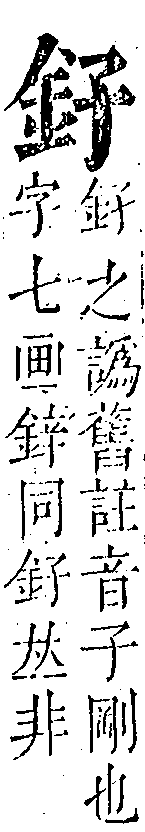 釨
之譌舊註音子剛也
字七画鋅同釨𠀤非